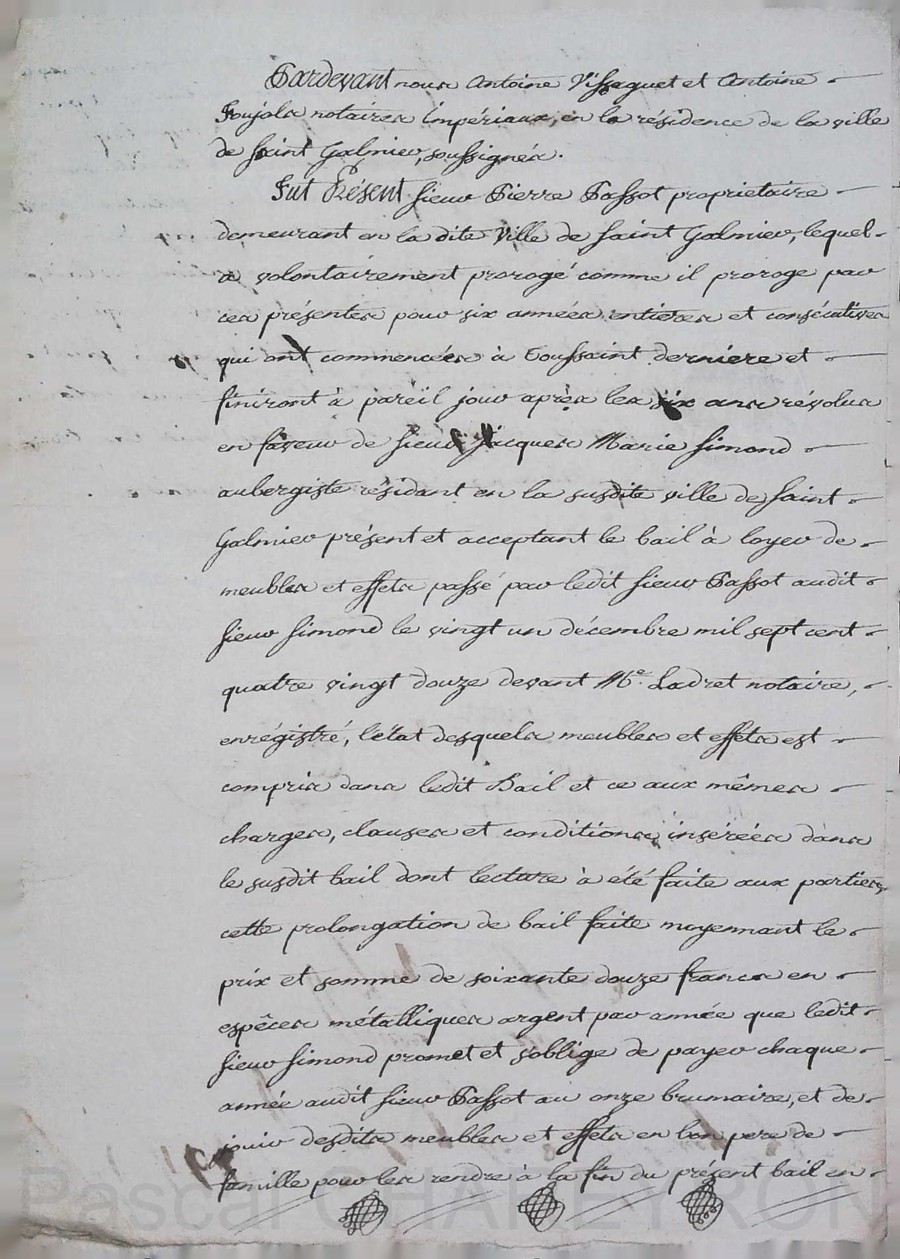 Pardevant nous Antoine Vissaguet et Antoine
Soujols notaires impériaux, en la résidence de la ville
de saint Galmier, soussignés.
Fut Présent sieur Pierre Passot proprietaire
demeurant en la dite Ville de saint Galmier, lequel
a volontairement prorogé comme il proroge par
ces présentes pour six années entieres et consécutives
qui ont commencées à toussaint derniere et
finiront à pareil jour après les six ans révolus
en faveur de sieur Jacques Marie Simond
aubergiste résidant en la susdite ville de saint
Galmier présent et acceptant le bail à loyer de
meubles et effets passé par ledit sieur Passot audit
sieur Simond le vingt un décembre mil sept cent
quatre vingt douze devant Me. Ladret notaire,
enrégistré, l'état desquels meubles et effets est
compris dans ledit Bail et ce aux mêmes
charges, clauses et conditions insérées dans
le susdit bail dont lecture à été faite aux parties,
cette prolongation de bail faite moyennant le
prix et somme de soixante douze francs en
espêces métalliques argent par année que ledit
sieur Simond promet et s'oblige de payer chaque
année audit sieur Passot au onze brumaire, et de
jouir desdits meubles et effets en bon pere de
famille pour les rendre à la fin du présent bail en
Pascal CHAREYRON